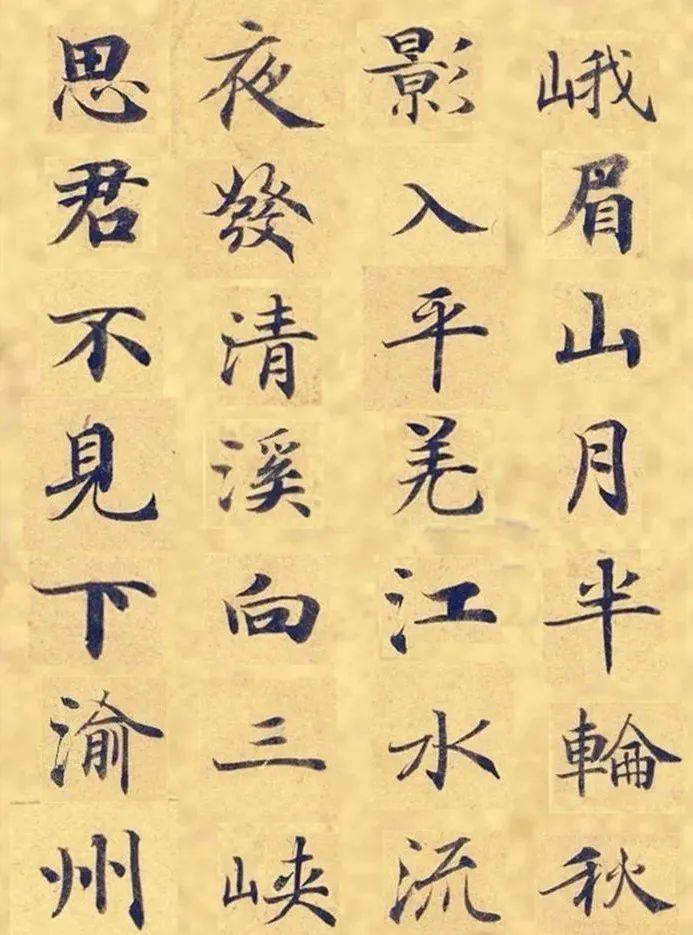 峨眉山月半輪秋
影入平羌江水流
夜發清溪向三峽
思君不見下渝州